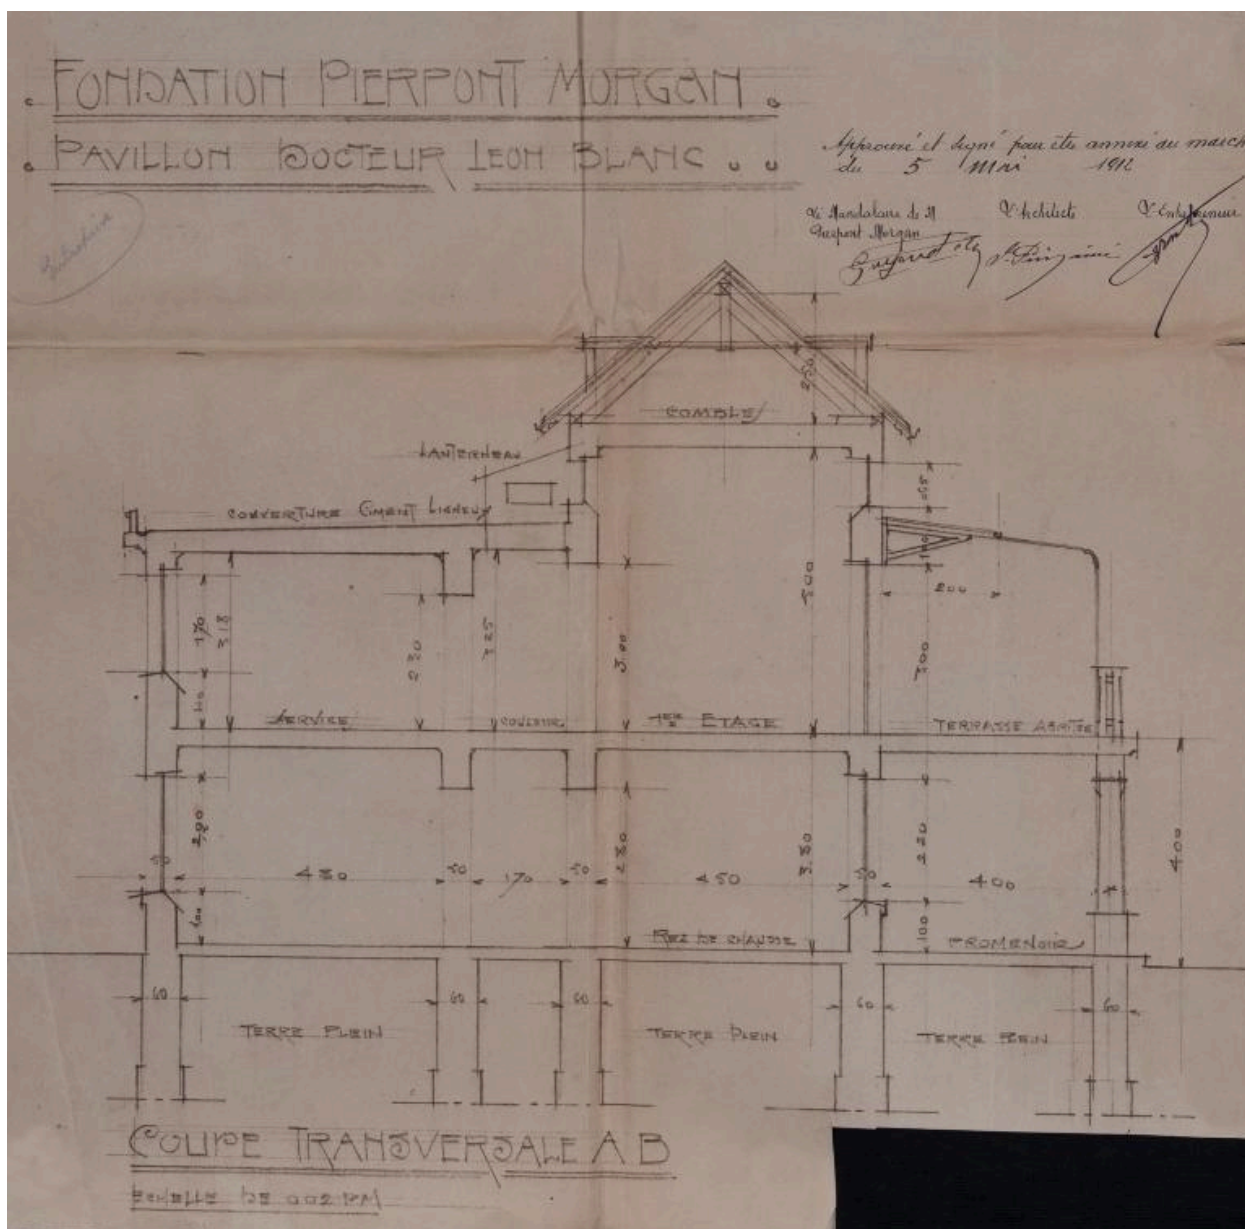 FONDATION PIERPONT MORGAN
PAVILLON DOCTEUR LEON BLANC
Approuvé et signé pour être annexé au march
du 5 Mai 1912
Le Mandataire de M L'Architecte L'Entrepreneur
Pierpont Morgan
250
COMBLE
LANTERNEAU
COUVERTURE CIMENT LIGNEUX
095
100
200
170
318
230
325
3.00
500
300
110
SERVICE
COULOIR
1ER ETAGE
TERRASSE ABRITÉE
2.20
400
50
430
50
170
50
280
450
3.80
50
400
100
REZ DE CHAUSSE
100
PROMENOIR
60
60
60
60
60
TERRE PLEIN
TERRE PLEIN
TERRE PLEIN
COUPE TRANSVERSALE A B
ECHELLE DE 0.02 PM